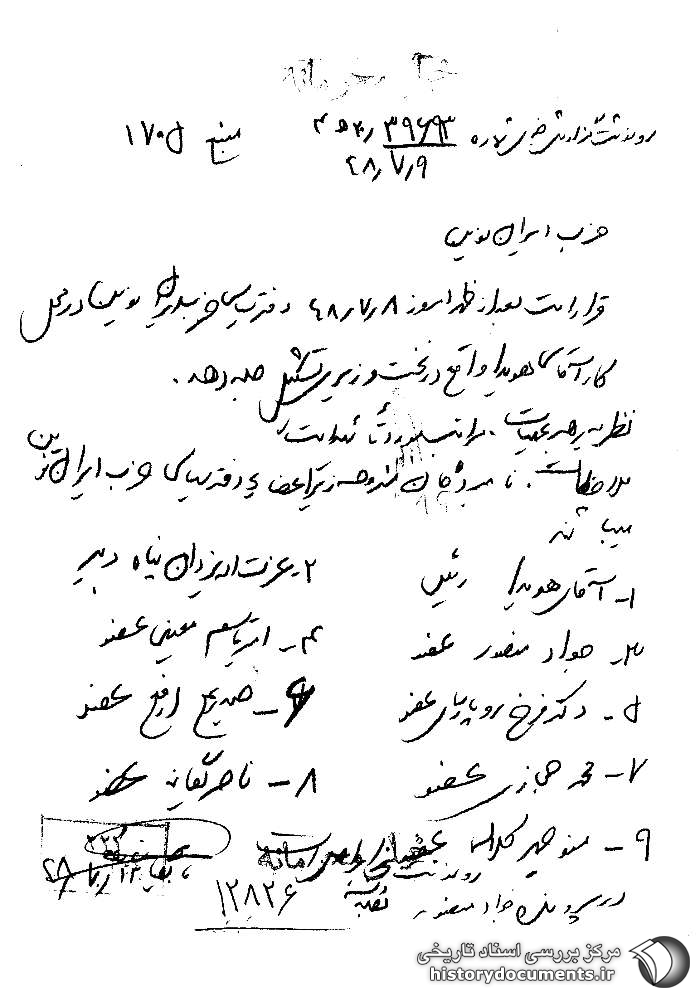 خیلی محرمانه
رونوشت گزارش خبری شماره ۳۹۶۹۳ / ۲۰ ه ۴ منبع ۱۷۰۵
۴۸٫۷٫۹
حزب ایران نوین
قرار است بعدازظهر امروز ۴۸٫۷٫۸ دفتر سیاسی حزب ایران نوین در محل
کار آقای هویدا واقع در نخست وزیری تشکیل جلسه دهد.
نظریه رهبر عملیات.
ملاحظات. نامبردگان مشروحه زیر اعضای دفتر سیاسی حزب ایران نوین
میباشند
۱- آقای هویدا رئیس ۲- عزت اله یزدان پناه دبیر
۳- جواد منصور عضو ۴- ابوالقاسم معینی عضو
۵- دکتر فرخ رو پارسای عضو ۶- صدیق ارفع عضو
۷- محمد حجازی عضو ۸- ناصر یگانه عضو
۹- منوچهر کلالی عضو
رونوشت
در پرونده جواد منصور ۱۲۸۲۶
مرکز بررسی اسناد تاریخی
historydocuments.ir